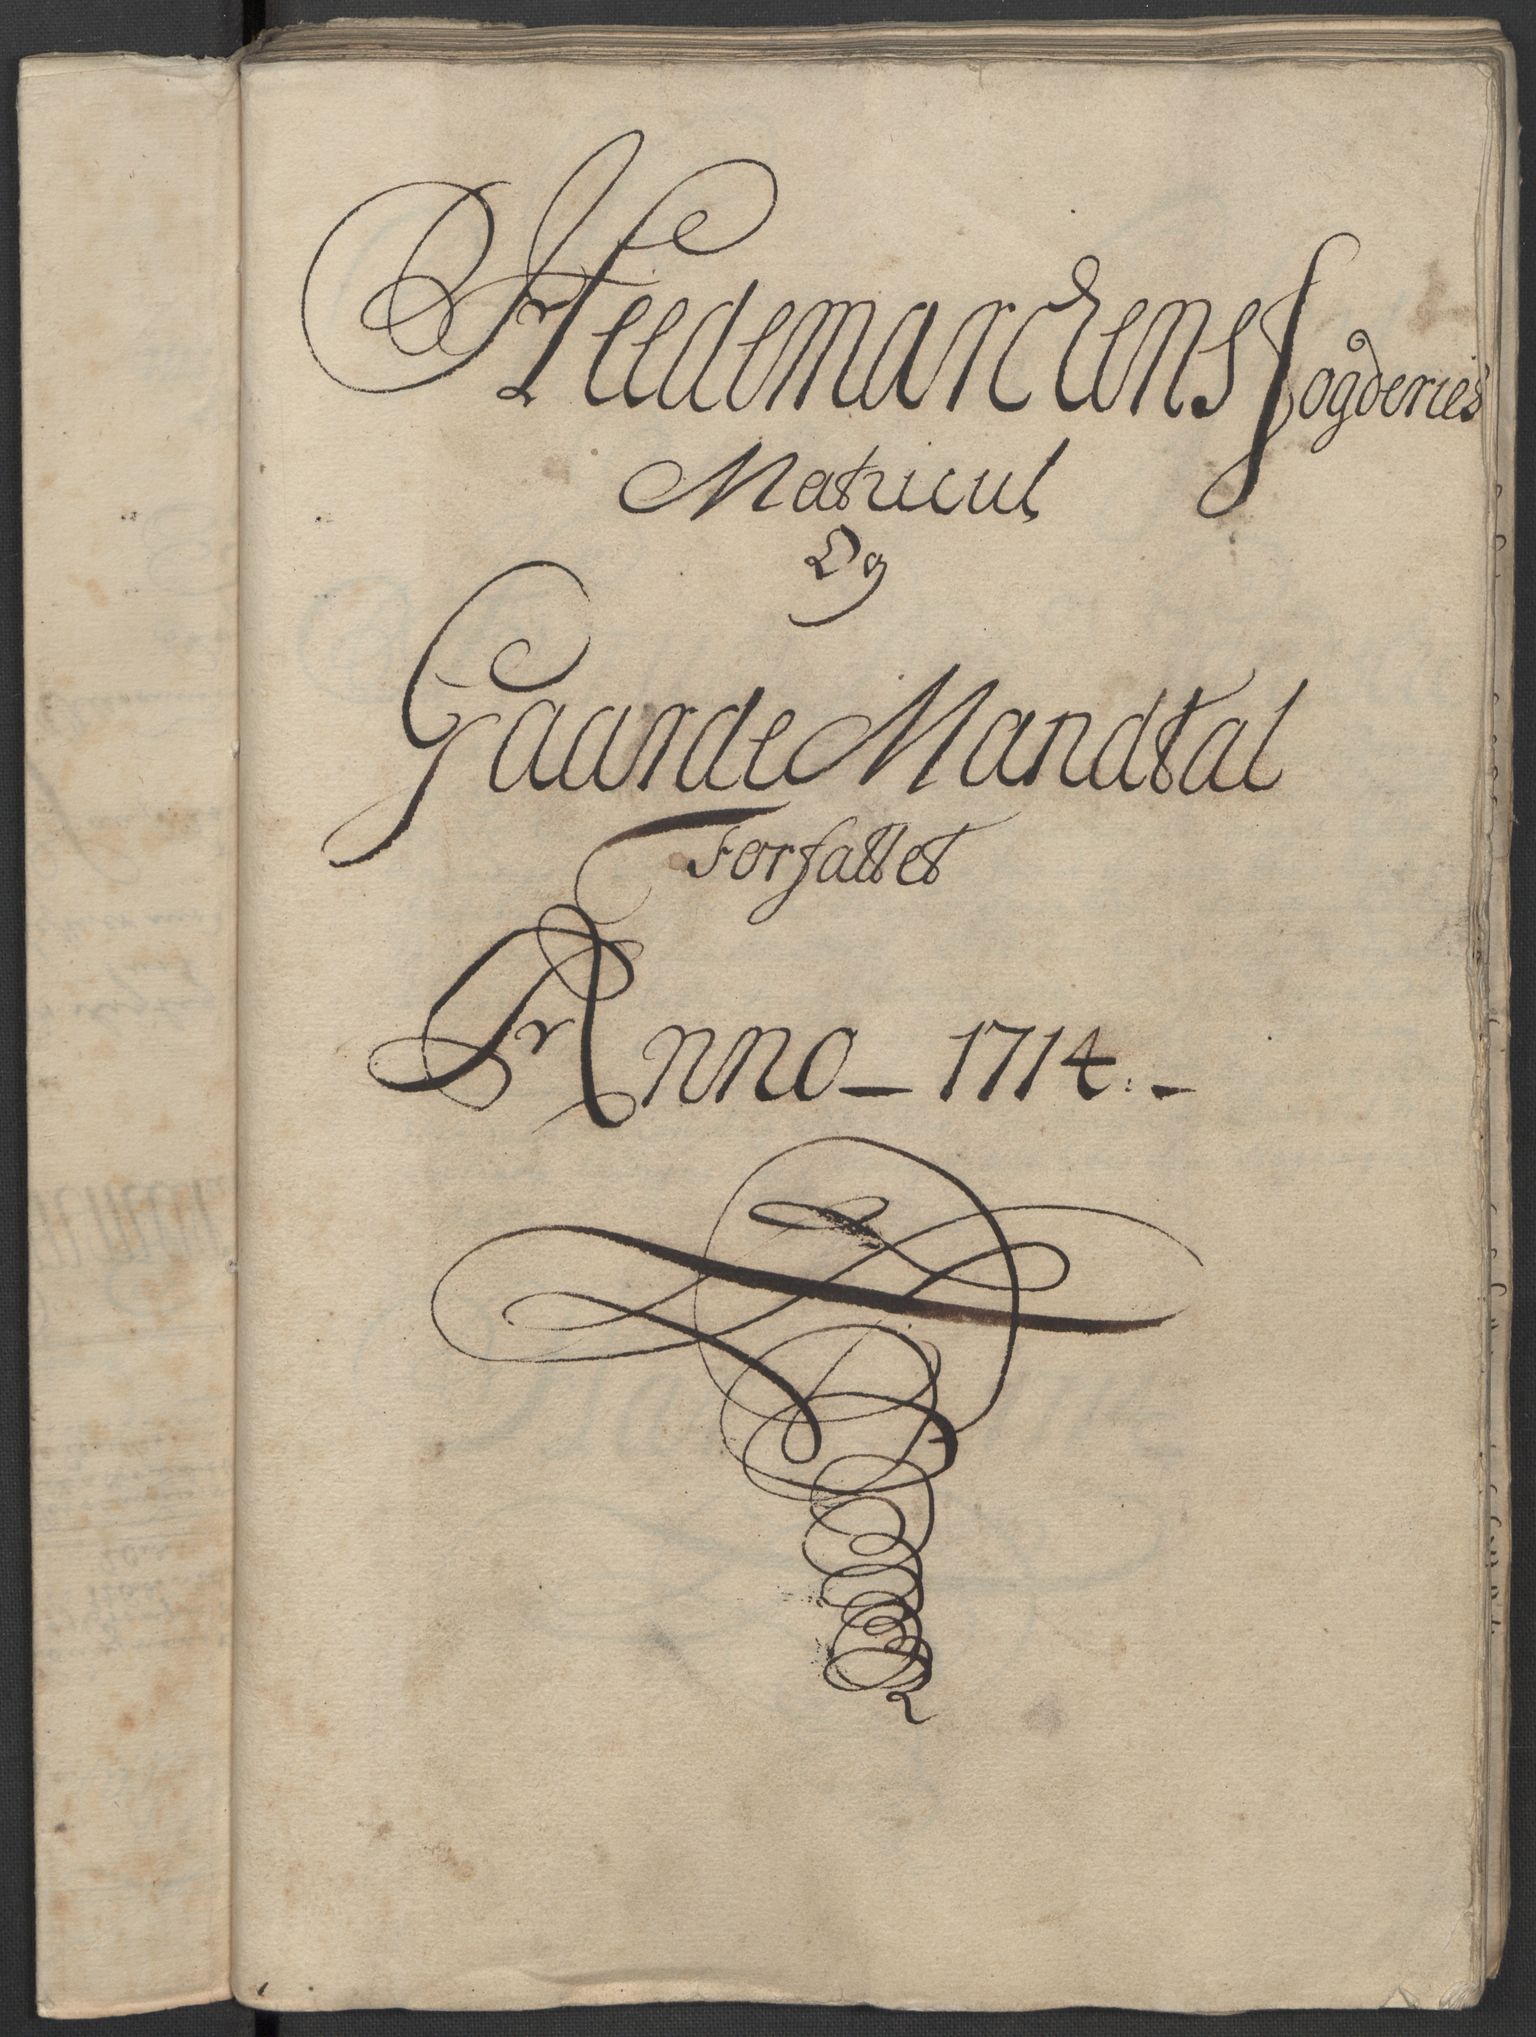 Heedemarckens fogderies
Matricul
Og
Gaarde Mandtal
Forfattet
Anno - 1714. -